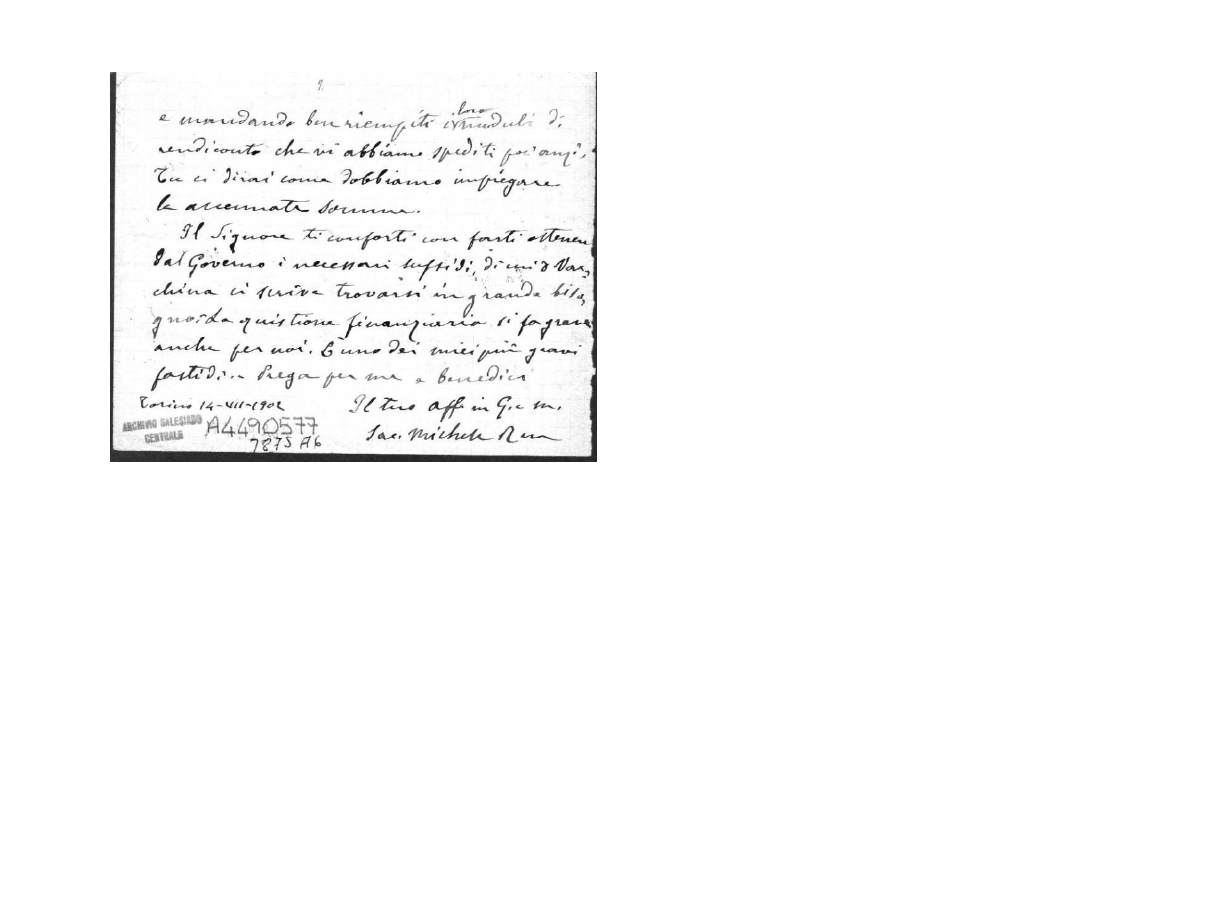 2.
e mandando ben riempiti i loro moduli di
rendiconto che vi abbiamo spediti poc'anzi.
Tu ci dirai come dobbiamo impiegare
le accennate somme.
Il Signore ti conforti con farti ottenere
dal Governo i necessari sussidi, di cui D Var
china ci scrive trovarsi in grande biso,
gno. La quistione finanziaria si fa grave
anche per noi. È uno dei miei più gravi
fastidi. Prega per me e benedici
Torino 14-VII-1902 Il tuo aff in G. e M.
Sac. Michele Rua
ARCHIVIO SALESIANO
CENTRALE
A4490577
7875 A6